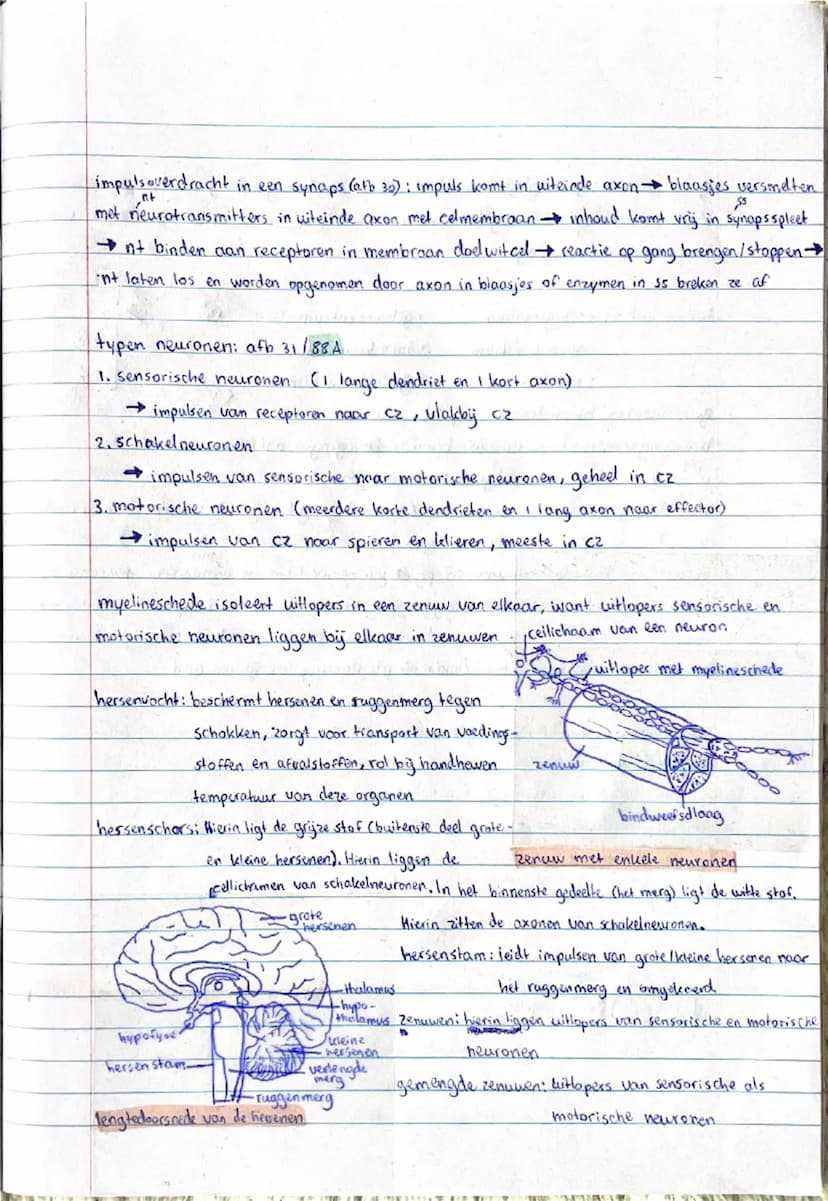 impulsoverdracht in een synaps (afb 30): impuls komt in uiteinde axon → blaasjes versmelten
nt
ss
met neurotransmitters in uiteinde axon met celmembraan → inhoud komt vrij in synapsspleet
→ nt binden aan receptoren in membraan doelwitcel → reactie op gang brengen/stoppen →
nt laten los en worden opgenomen door axon in blaasjes of enzymen in ss breken ze af
typen neuronen: afb 31/88A
1. sensorische neuronen (1 lange dendriet en 1 kort axon)
→ impulsen van receptoren naar cz, vlakbij cz
2. schakelneuronen
→ impulsen van sensorische naar motorische neuronen, geheel in cz
3. motorische neuronen (meerdere korte dendrieten en 1 lang axon naar effector)
→ impulsen van cz naar spieren en klieren, meeste in cz
myelineschede isoleert uitlopers in een zenuw van elkaar, want uitlopers sensorische en
motorische neuronen liggen bij elkaar in zenuwen
cellichaam van een neuron
uitloper met myelineschede
zenuw
bindweefsellaag
zenuw met enkele neuronen
hersenvocht: beschermt hersenen en ruggenmerg tegen
schokken, zorgt voor transport van voedings-
stoffen en afvalstoffen, rol bij handhaven
temperatuur van deze organen
hersenschors: Hierin ligt de grijze stof (buitenste deel grote-
en kleine hersenen). Hierin liggen de
cellichamen van schakelneuronen. In het binnenste gedeelte (het merg) ligt de witte stof.
Hierin zitten de axonen van schakelneuronen.
hersenstam: leidt impulsen van grote/kleine hersenen naar
het ruggenmerg en omgekeerd
zenuwen: hierin liggen uitlopers van sensorische en motorische
neuronen
gemengde zenuwen: uitlopers van sensorische als
motorische neuronen
grote
hersenen
thalamus
hypo-
thalamus
hypofyse
kleine
hersenen
hersenstam
verlengde
merg
ruggenmerg
lengtedoorsnede van de hersenen